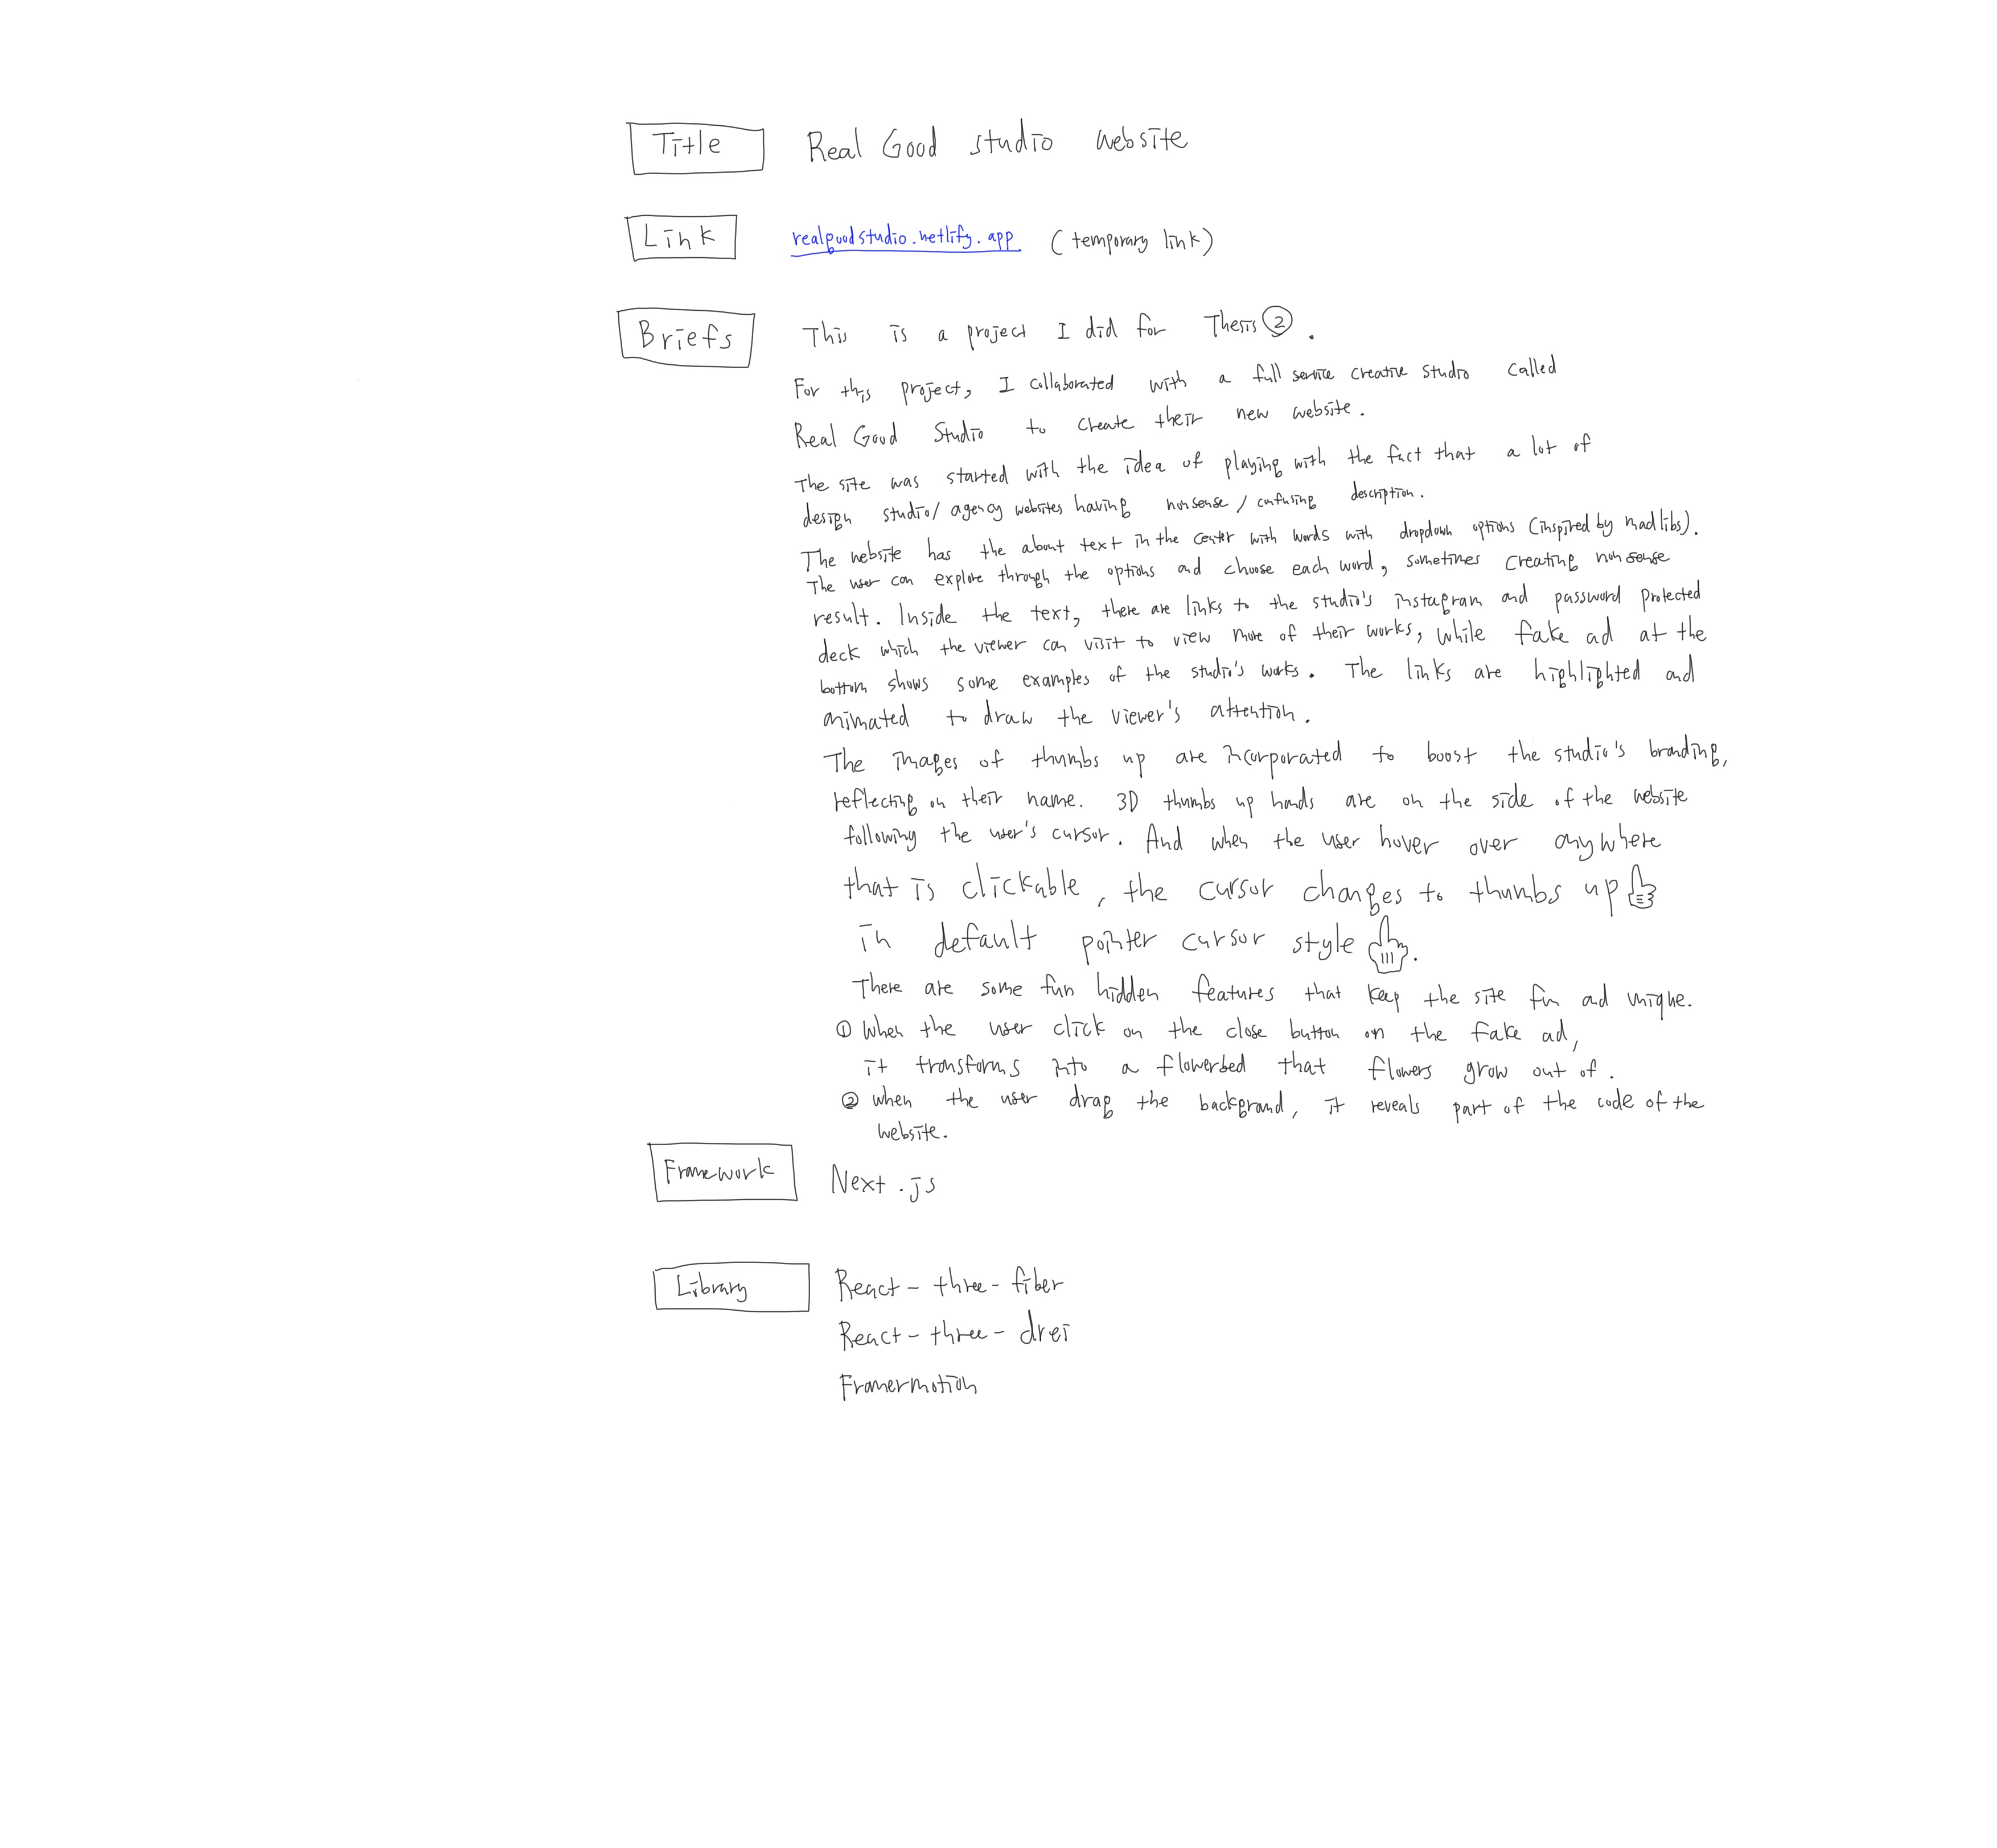 Title Real Good studio website
Link realgoodstudio.netlify.app (temporary link)
Briefs This is a project I did for Thesis ②.
For this project, I collaborated with a full service creative studio called
Real Good Studio to create their new website.
The site was started with the idea of playing with the fact that a lot of
design studio/ agency websites having nonsense / confusing description.
The website has the about text in the center with words with dropdown options (inspired by madlibs).
The user can explore through the options and choose each word, sometimes creating nonsense
result. Inside the text, there are links to the studio's instagram and password protected
deck which the viewer can visit to view more of their works, while fake ad at the
bottom shows some examples of the studio's works. The links are highlighted and
animated to draw the viewer's attention.
The images of thumbs up are incorporated to boost the studio's branding,
reflecting on their name. 3D thumbs up hands are on the side of the website
following the user's cursor. And when the user hover over anywhere
that is clickable, the cursor changes to thumbs up
in default pointer cursor style.
There are some fun hidden features that keep the site fun ad unique.
① When the user click on the close button on the fake ad,
it transforms into a flowerbed that flowers grow out of.
② when the user drag the background, it reveals part of the code of the
website.
Framework Next.js
Library React-three-fiber
React-three-drei
Framermotion